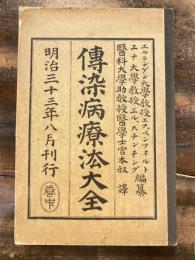 エルランゲン大學教授エフ、ペンツオルト
エナ大學教授エル、スチンチング 編纂
醫科大學助教授醫學士宮本叔 譯
傳染病療法大全
明治三十三年八月刊行